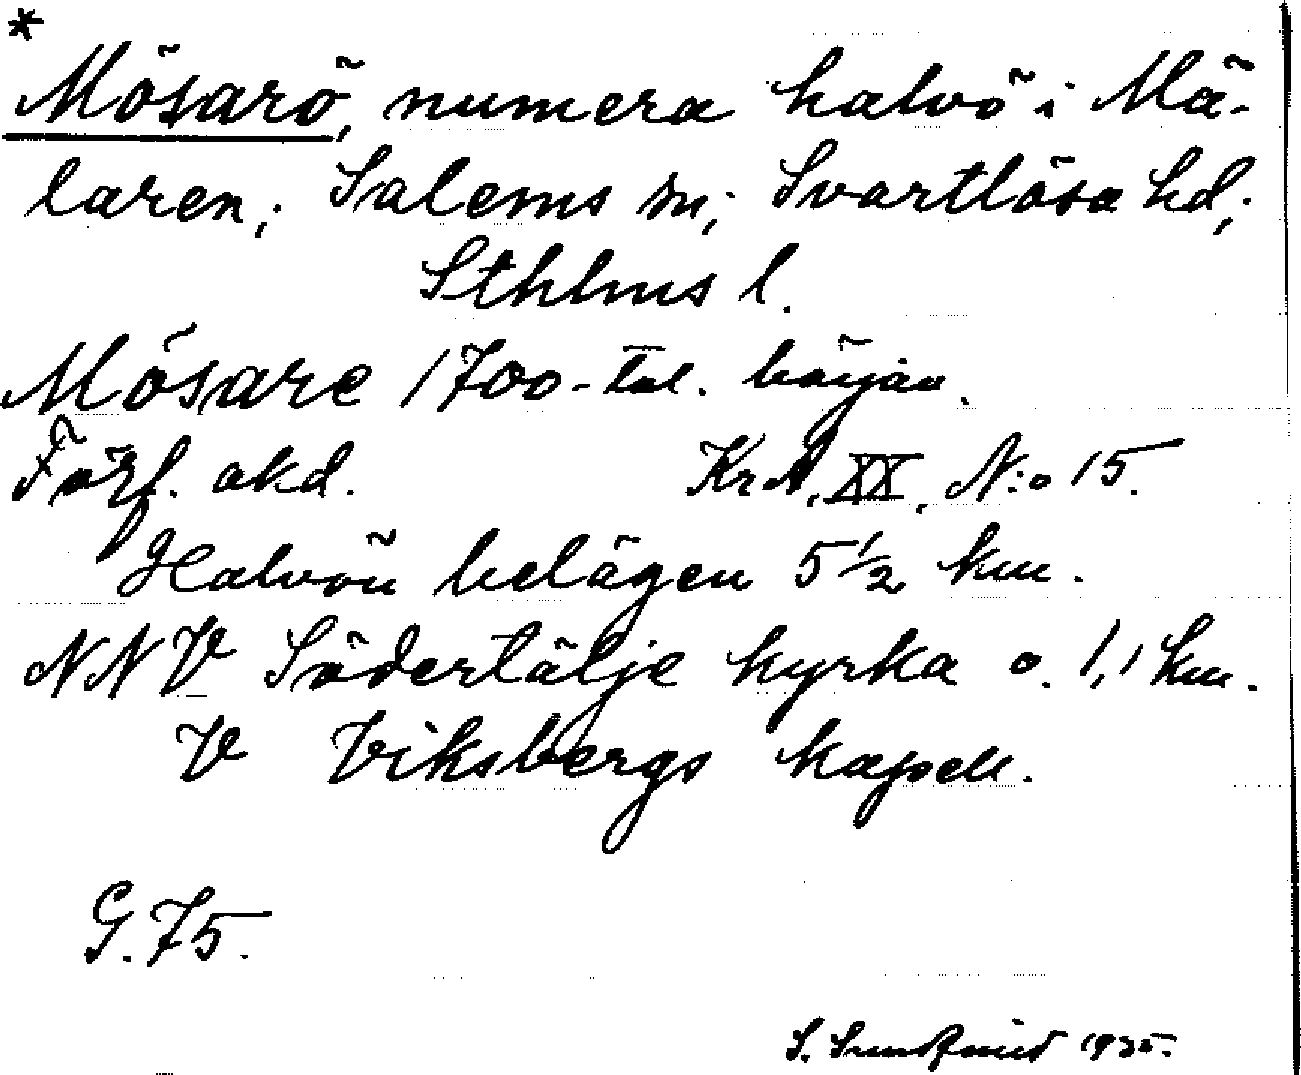 *
Mösarö, numera halvö i Mä-
laren; Salems sn; Svartlösa hd;
Sthlms l.
Mösare 1700-tal. början.
Förf. akd. KrA, XX, N:o 15.
Halvön belägen 5 1/2 km.
NNV Södertälje kyrka o. 1,1 km.
V Viksbergs kapell.
G. 75.
S. 1935.